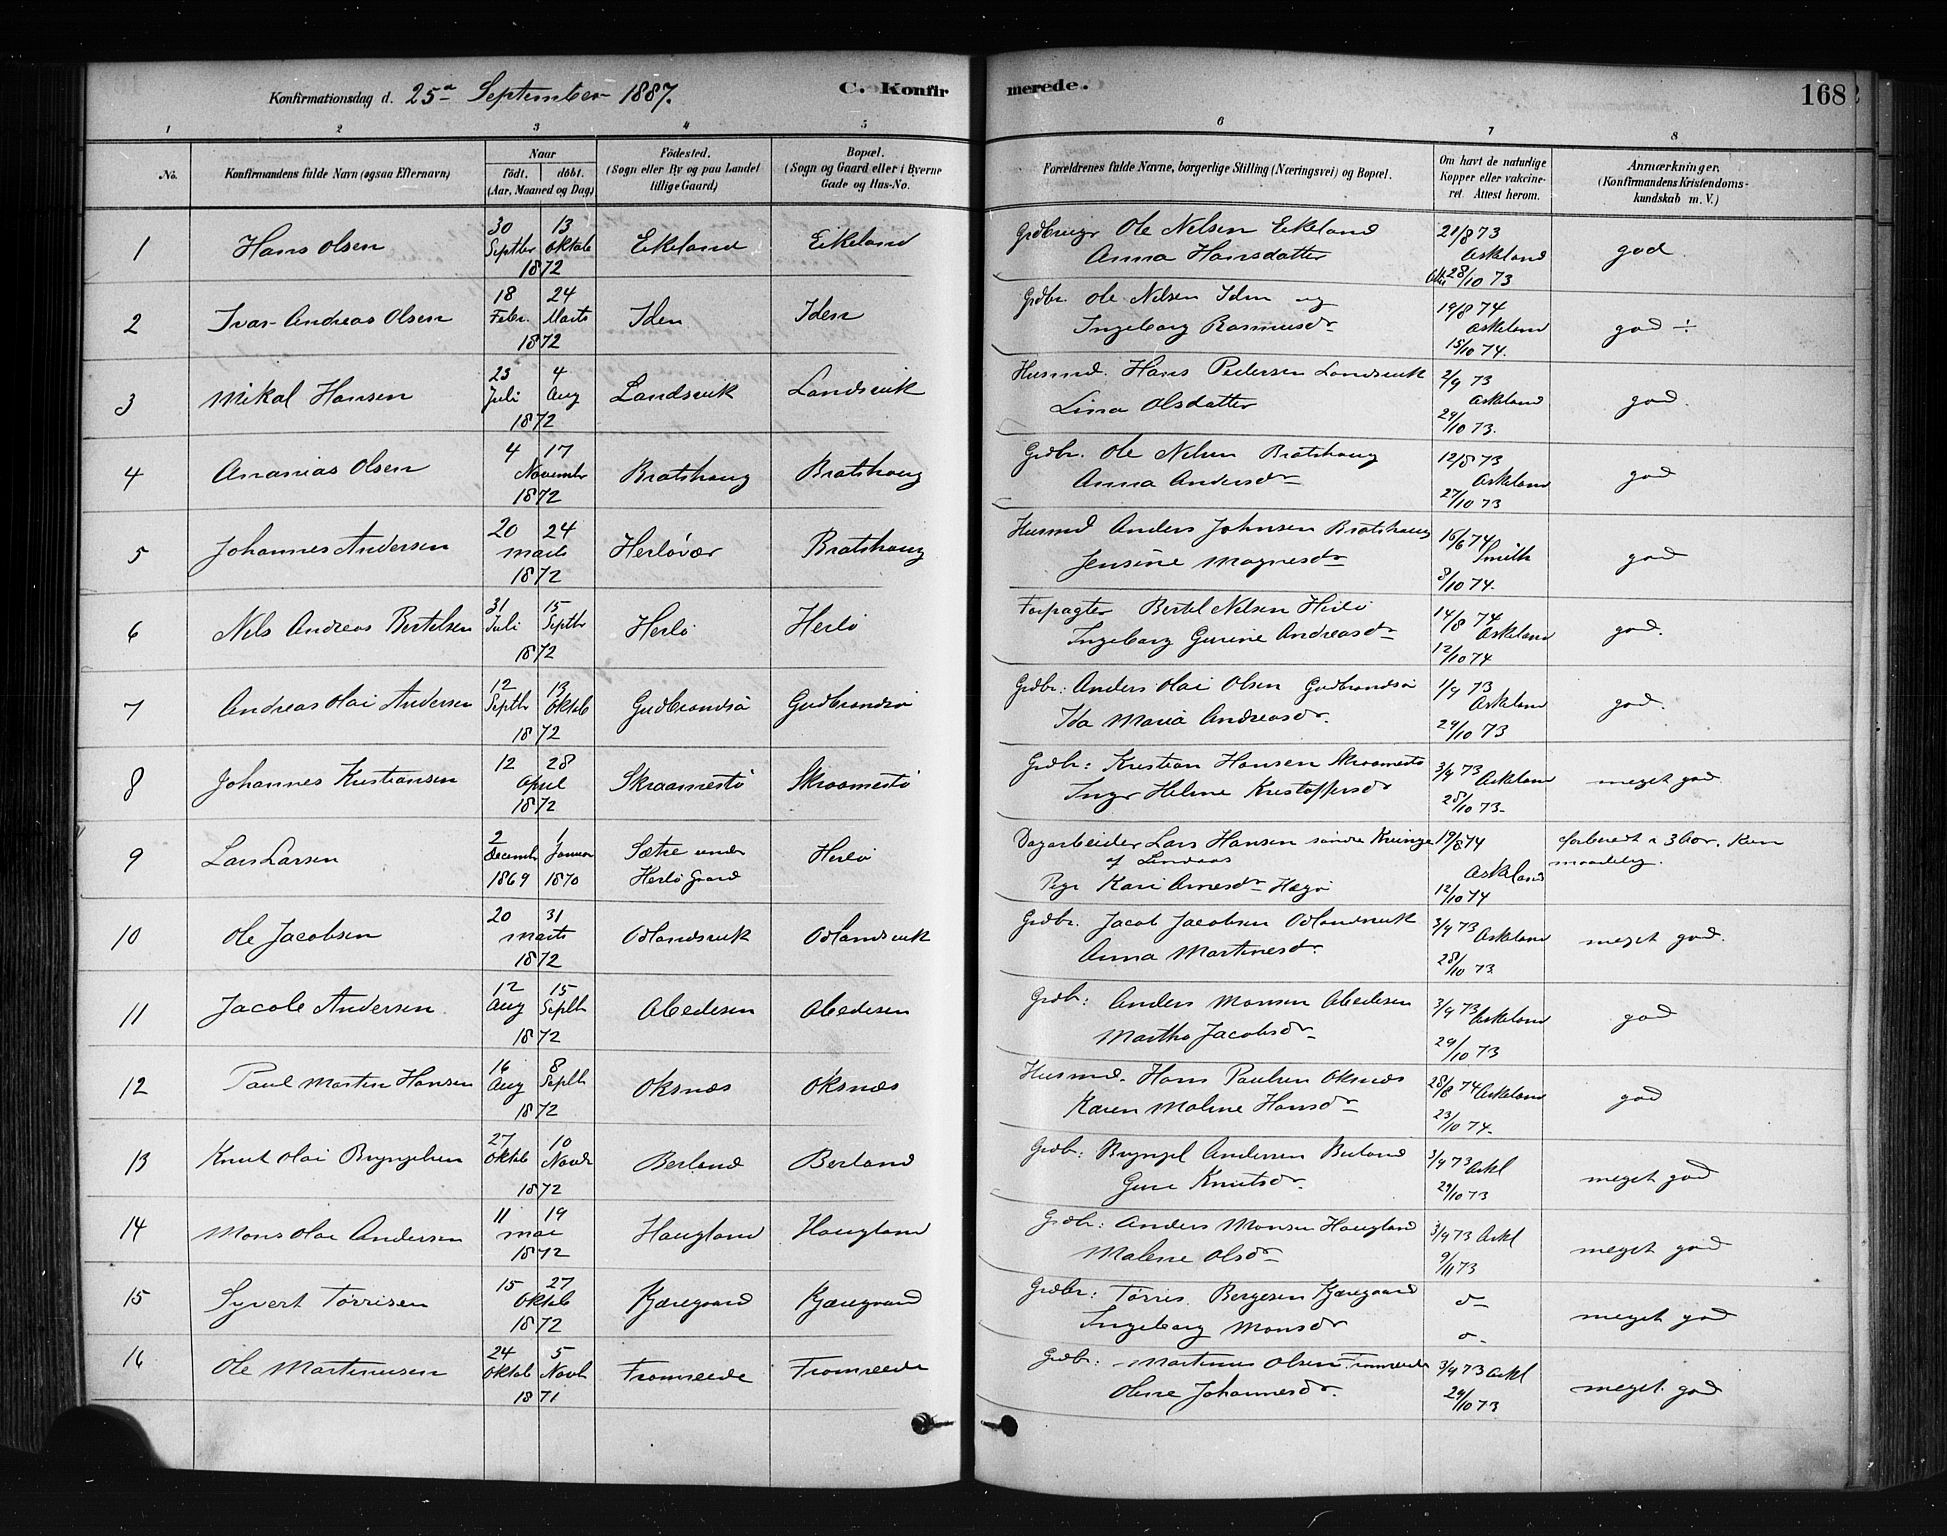 Konfirmationsdag d. 25de September 1887.
C. Konfirmerede.
168
1 2 3 4 5 6 7 8
No.
Konfirmandens fulde Navn (ogsaa Efternavn)
Naar
födt. döbt.
(Aar, Maaned og Dag)
Födested.
(Sogn eller By og paa Landet
tillige Gaard)
Bopæl.
(Sogn og Gaard eller i Byerne
Gade og Hus-No.
Forældrenes fulde Navne, borgerlige Stilling (Næringsvei) og Bopæl.
Om havt de naturlige
Kopper eller vakcine-
ret. Attest herom.
Anmærkninger.
(Konfirmandens Kristendoms-
kundskab m. V.)
1 Hans Olsen 30 Septbr 13 Oktob 1872 Eikeland Eikeland Grdbruger Ole Nelsen Eikeland 21/8 73 Askeland god.
Anna Hansdatter 28/10 73
2 Ivar Andreas Olsen 18 Febr. 24 Marts 1872 Iden Iden Grdbr. Ole Nelsen Iden og 19/8 74 Askeland god ÷
Ingeborg Rasmusdr 15/10 74.
3 Mikal Hansen 23 Juli 4 Aug 1872 Landsvik Landsvik Husmd. Hans Pedersen Landsvik 2/9 73 Askeland god.
Lina Olsdatter 29/10 73.
4 Ananias Olsen 4 17 Novembr 1872 Bratshaug Bratshaug Grdbr. Ole Nelsen Bratshaug 12/8 73 Askeland god
Anna Andersdr 27/10 73
5 Johannes Andersen 20 24 Marts 1872 Herlövær Bratshaug Husmd Anders Johnsen Bratshaug 16/6 74 Smith god
Jensine Magnesdr 8/10 74.
6 Nils Andreas Bertelsen 31 Juli 15 Septbr 1872 Herlö Herlö Forpagter Bertel Nelsen Herlö 14/8 74 Askeland god.
Ingeborg Gurine Andreasdr 12/10 74
7 Andreas Olai Andersen 12 Septbr 13 Oktob 1872 Gudbrandsö Gudbrandsö Grdbr: Anders Olai Olsen Gudbrandsö 1/9 73 Askeland god.
Ida Maria Andreasdr. 29/10 73
8 Johannes Kristiansen 12 28 April 1872 Skraamestö Skraamestö Grdbr: Kristian Hansen Skraamestö 3/9 73 Askeland meget god
Inger Helene Kristoffersdr 28/10 73
9 Lars Larsen 2 Decembr 1869 1 Januar 1870 Sætre under Herlö Gaard Herlö Dagarbeider Lars Hansen söndre Kvinge 19/8 74 Askeland forberedt i 3 Aar. Kun
af Lindaas maadelig.
Pige Kari Arnesdr 12/10 74
10 Ole Jacobsen 20 31 Marts 1872 Odlandsvik Odlandsvik Grdbr. Jacob Jacobsen Odlandsvik 3/9 73 Askeland meget god.
Anna Martinesdr. 28/10 73
11 Jacob Andersen 12 Aug 15 Septbr 1872 Abedesen Abedesen Grdbr: Anders Monsen Abedesen 3/9 73 Askeland god
Martha Jacobsdr 29/10 73
12 Paul Martin Hansen 16 Aug 8 Septbr 1872 Oksnæs Oksnæs Husmd. Hans Paulsen Oksnæs 28/8 74 Askeland god
Karen Malene Hansdr 23/10 74
13 Knut Olai Bryngelsen 27 Oktob 10 Novbr 1872 Berland Berland Grdbr: Bryngel Andersen Berland 3/9 73 Askl meget god
Guri Knutsdr. 29/10 73
14 Mons Olai Andersen 11 19 Mai 1872 Haugland Haugland Grdbr: Anders Monsen Haugland 3/9 73 Askl meget god
Malene Olsdr 9/11 73
15 Syvert Törrisen 15 27 Oktob 1872 Kjæregaard Kjæregaard Grdbr: Törris Börgesen Kjæregaard meget god
Ingeborg Monsdr
16 Ole Martinusen 24 Oktob 5 Novb 1871 Fromreide Fromreide Grdbr: Martinus Olsen Fromreide 3/9 73 Askl meget god
Oline Johannesdr. 29/10 73